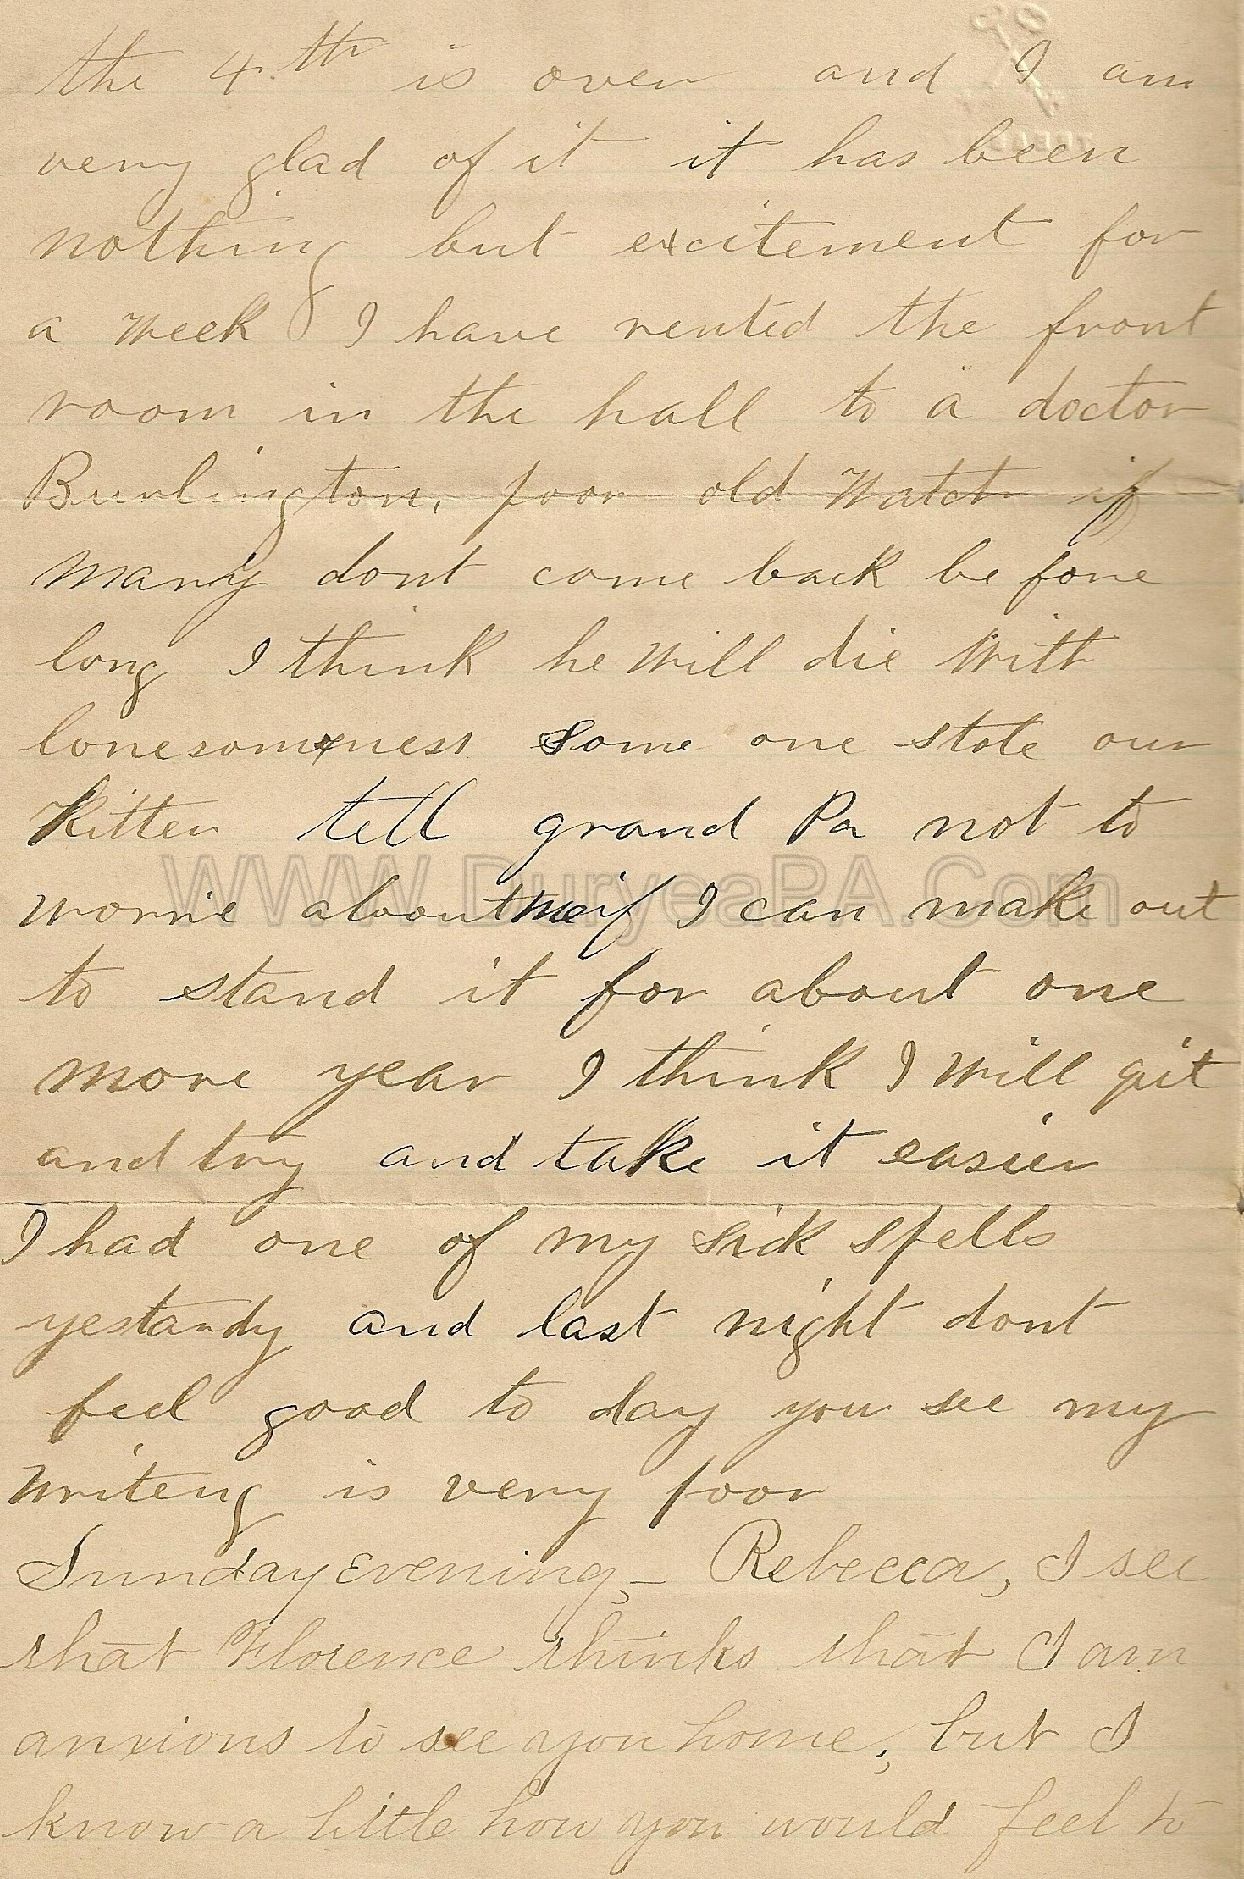 the 4.th is over and I am
very glad of it it has been
nothing but excitement for
a week I have rented the front
room in the hall to a doctor
Burlington, poor old Watch if
Mary dont come back be fore
long I think he will die with
lonesomeness some one stole our
Kitten tell grand Pa not to
worrie about me if I can make out
to stand it for about one
more year I think I will quit
and try and take it easier
I had one of my sick spells
yestardy and last night dont
feel good to day you see my
writeng is very poor
Sunday evening,– Rebecca, I see
that Florence thinks that I am
anxious to see you home, but I
know a little how you would feel to
WWW.DuryeaPA.Com